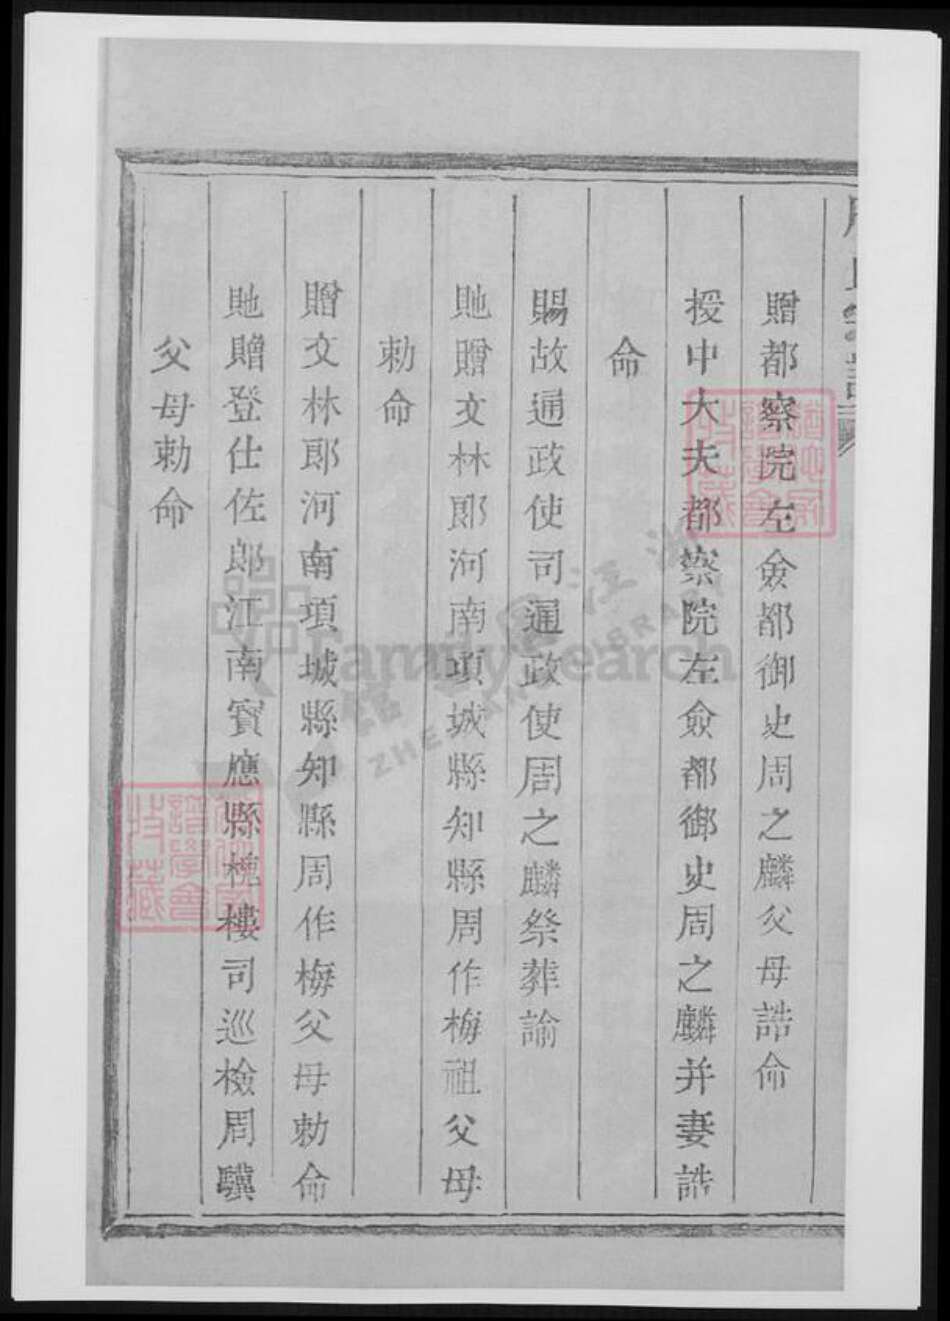 贈都察院左僉都御史周之麟父母誥命
授中大夫都察院左僉都御史周之麟并妻誥
命
賜故通政使司通政使周之麟祭葬諭
貤贈文林郎河南項城縣知縣周作梅祖父母
勅命
贈文林郎河南項城縣知縣周作梅父母勅命
貤贈登仕佐郎江南寶應縣槐樓司巡檢周驥
父母勅命
FamilySearch
ZHEJIANG LIBRARY